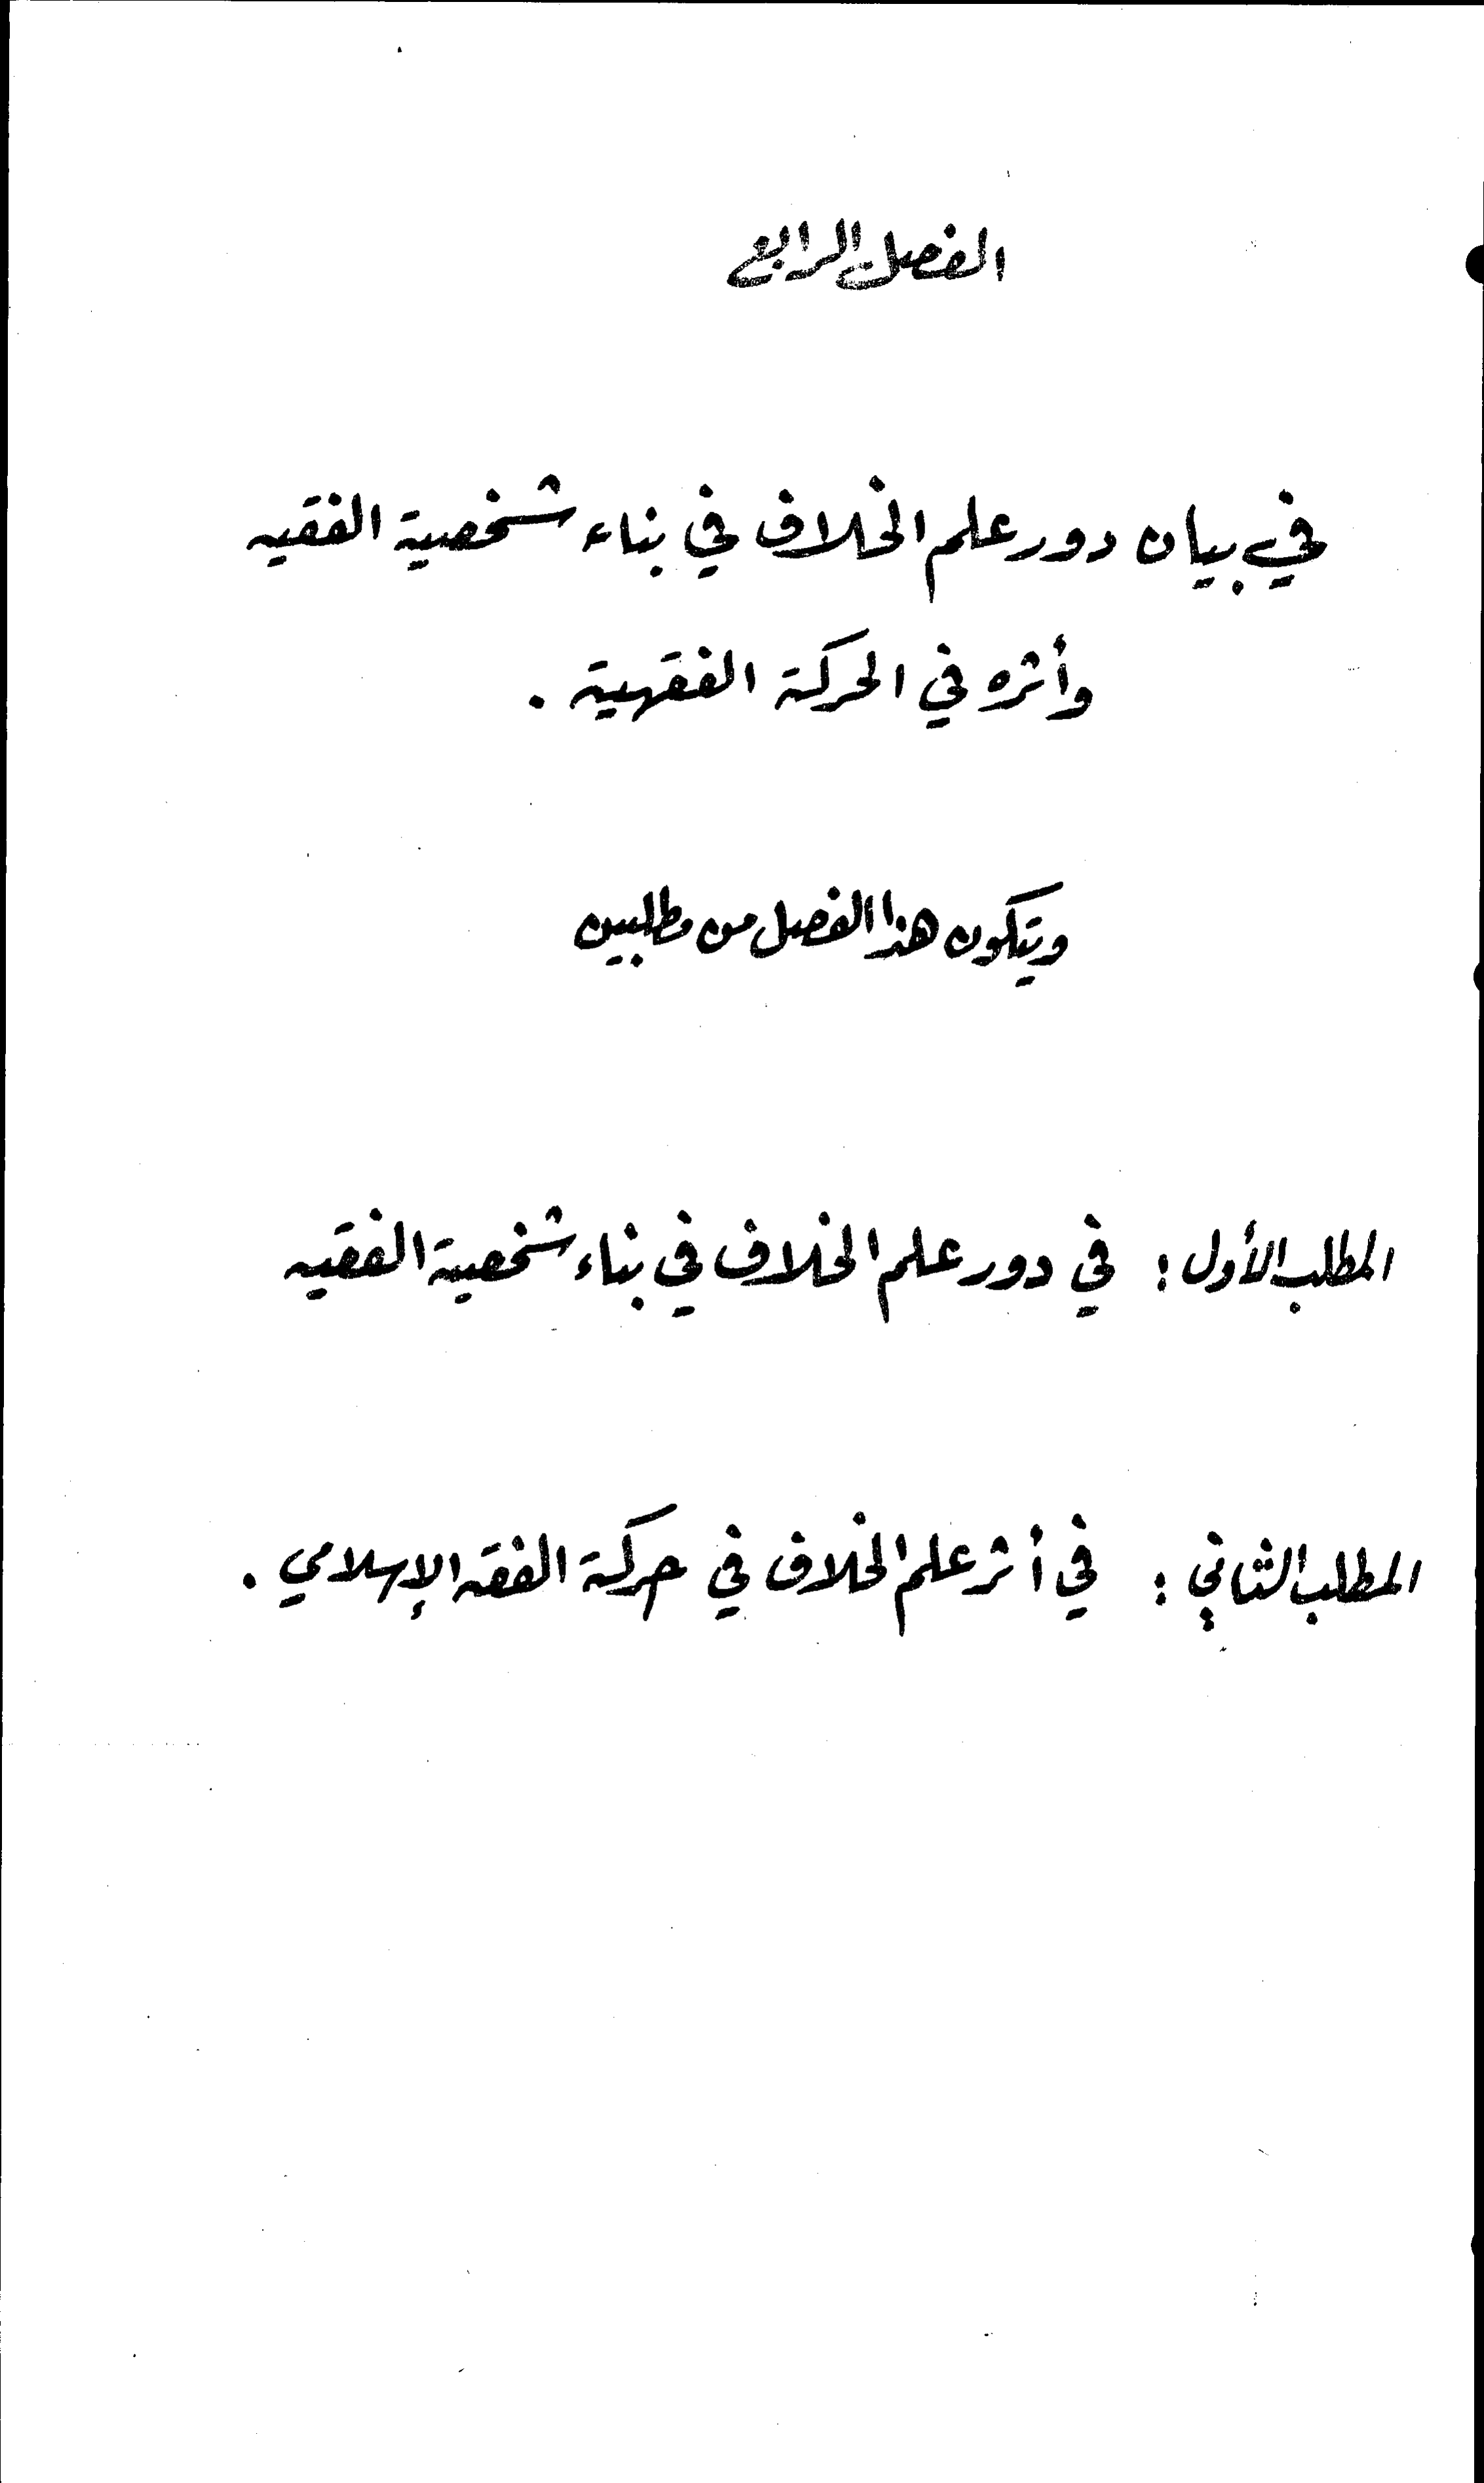 الفصل الرابع
في بيان دور علم الخلاف في بناء شخصية الفقيه
وأثره في الحركة الفقهية .
ويتكون هذا الفصل من مطلبين
المطلب الأول : في دور علم الخلاف في بناء شخصية الفقيه
المطلب الثاني : في أثر علم الخلاف في حركة الفقه الإسلامي .